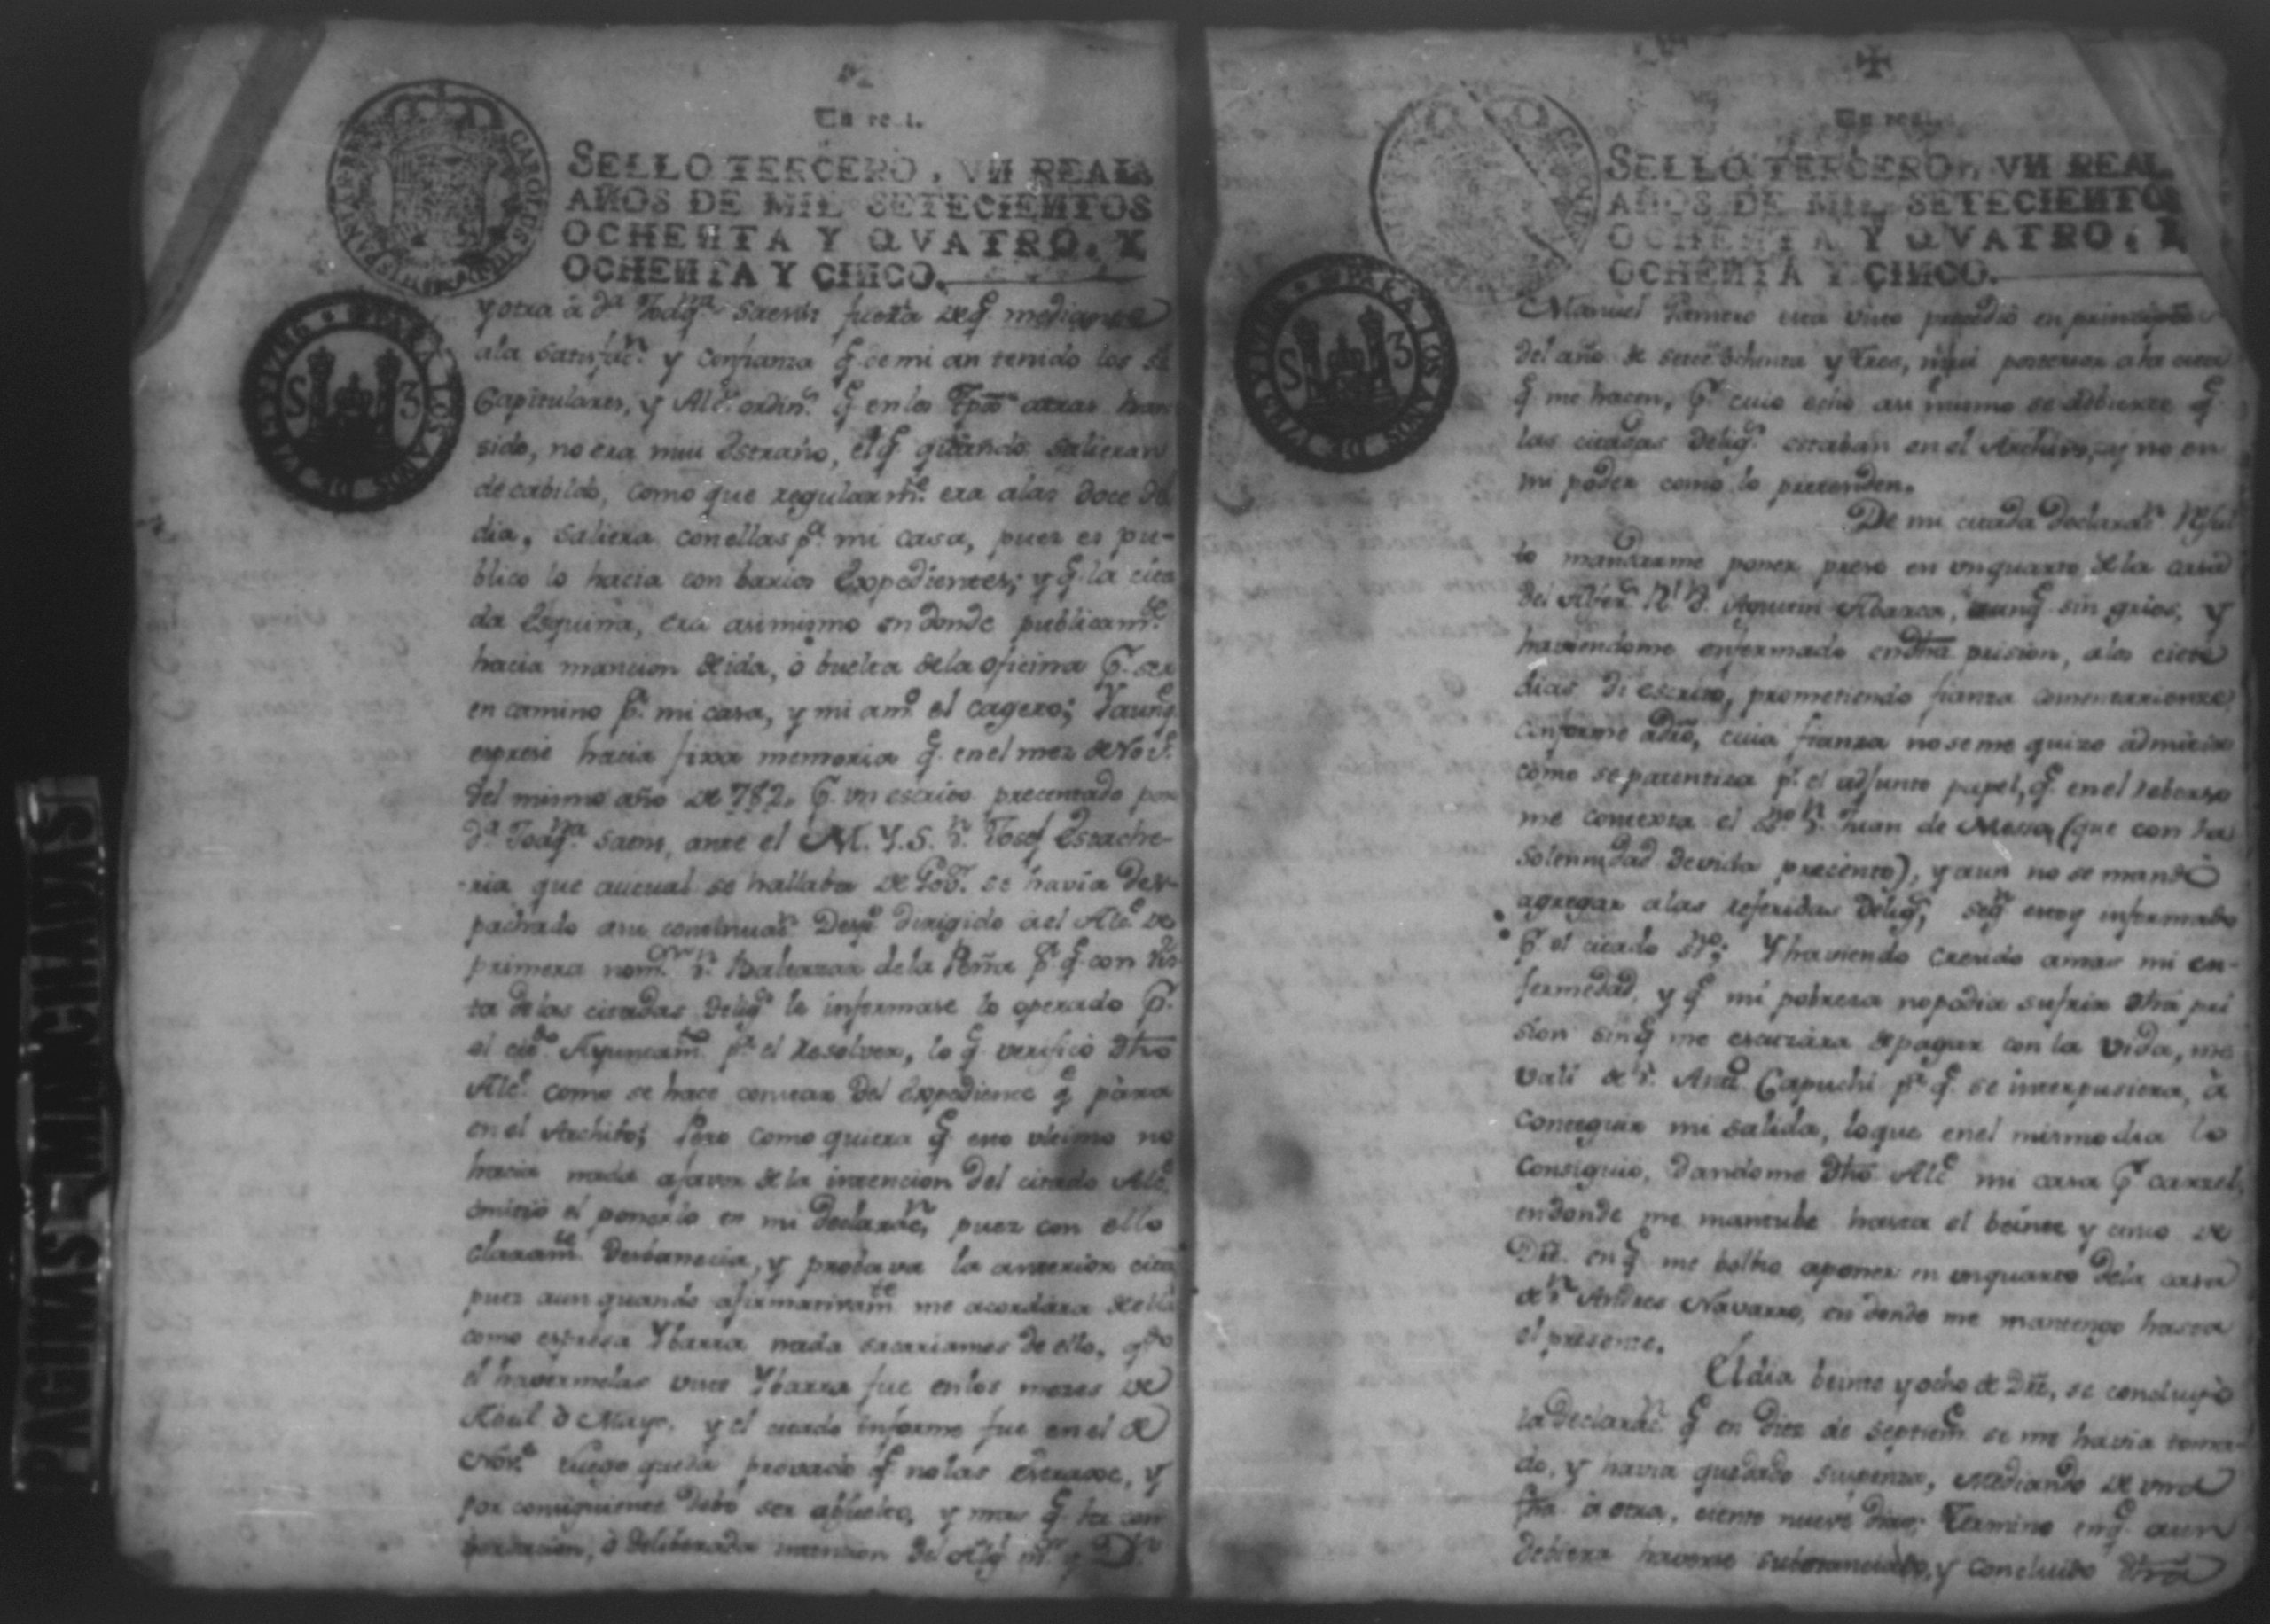 Un real.
SELLO TERCERO, VN REAL,
AÑOS DE MIL SETECIENTOS
OCHENTA Y QVATRO, Y
OCHENTA Y CINCO.
y otra â dª Joaqna saens fuera de q mediante
ala satisfacn y confianza q de mi an tenido los
Capitulares, y Alces ordins q en los tpos atras han
sido, no era mui estraño, el q quando salieran
de cabildo, como que regularmte era alas doce del
dia, saliera con ellas pa mi casa, pues es pu-
blico lo hacia con barios Expedientes; y q la cita
da Esquina, era asimismo en donde publicamte
hacia mancion de ida, ó buelta de la oficina pr ser
en camino pa mi casa, y mi amo el cagero; Yaunq
espresé hacia fixa memoria q en el mes de Nove
del mismo año de 782, pr un escrito precentado por
dª Joaqna saens, ante el M. Y. S. Dn Josef Estache-
ria que actual se hallaba de Govr se havia des-
pachado asu continuacn Despo dirigido à el Alce de
primera nomon Dn Baltazar de la Peña pa q con vis-
ta de las citadas deligs le informase lo operado pr
el citdo Ayuntamto pa el resolver, lo q verificó dho
Alce como se hace constar del Expediente q pàra
en el Archibo; Pero como quiera q esto ultimo no
hacia nada afavor de la intencion del citado Alce
omitió el ponerlo en mi declaracn, pues con ello
claramte desbanecia, y probava la anterior cita
pues aun quando afirmativamte me acordàra de ella
como espresa Ybarra nada sacariamos de ello, qdo
el havermelas visto Ybarra fue en los meses de
Abril ò Mayo. y el citado informe fue en el de
Nove luego queda provado q no las extraxe, y
por consiguiente debó ser absuelto, y mas q
ó deliberada intencion del
Un real.
SELLO TERCERO, VN REAL,
AÑOS DE MIL SETECIENTOS
OCHENTA Y QVATRO, Y
OCHENTA Y CINCO.
Manuel Romero esta vino precedió en principios
del año de setecs ochenta y tres, mui posterior a la cita
q me hacen, pr cuio echo asi mismo se adbierte q
las citadas deligs estaban en el Archivo, y no en
mi poder como lo pretenden.
De mi citada declaracn resul
to mandarme poner preso en un quarto de la casa
del Alferz Rl Dn Agustin Abarca, aunq sin grios, y
haviendome enfermado en dha prision, alos ciete
dias di escrito, prometiendo fianza comentariense
conforme adro, cuia fianza no se me quizo admitir
como se patentiza pr el adjunto papel, q en el reberso
me contexta el Sno Dn Juan de Messa (que con la
solennidad devida precento), y aun no se mandó
agregar alas referidas deligs, segn estoy informado
pr el citado Sno; Y haviendo crecido amas mi en-
fermedad, y q mi pobresa no podia sufrir dha pri
sion sin q me escuzàra de pagar con la vida, me
valì de Dn Anto Capuchi pa q se interpusiera, à
conceguir mi salida, loque en el mismo dia lo
consiguió, dandome dho Alce mi casa pr carzel,
en donde me mantube hasta el beinte y cinco de
Dre. en q me bolbio aponer en un quarto dela casa
de Dn Andres Navarro, en donde me mantengo hasta
el presente.
El dia beinte y ocho de Dre, se concluyò
la declaracn q en diez de septieme se me havia toma-
do, y havia quedado suspensa, mediando de una
fha à otra, ciento nueve dias; Termino en q aun
debiera haverse substanciado, y concluido dha
PAGINAS MANCHADAS